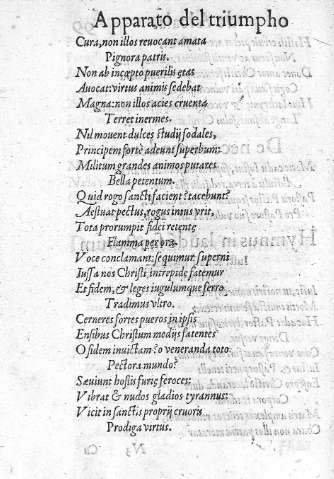 Apparato del triumpho
Cura, non illos revocant amata
Pignora patris.
Non ab incœpto puerilis ętas
Avocat: virtus animis sedebat
Magna: non illos acies cruenta
Terret inermes.
Nil movent dulces studij sodales,
Principem fortè adeunt superbum:
Militum grandes animos putares
Bella petentum.
Quid rogo sancti facient? tacebunt?
Aestuat pectus, rogus intus vrit,
Tota prorumpit fidei retentę
Flamma per ora.
Voce conclamant: sequimur superni
Iussa nos Christi, intrepidè fatemur
Et fidem, & leges iugulumque ferro
Tradimus vltro.
Cerneres fortes pueros in ipsis
Ensibus Christum medijs fatentes
O fidem invictam: ò veneranda toto
Pectora mundo?
Sæuiunt hostis furię feroces:
Vibrat & nudos gladios tyrannus:
Vicit in sanctis proprij cruoris
Prodiga virtus.